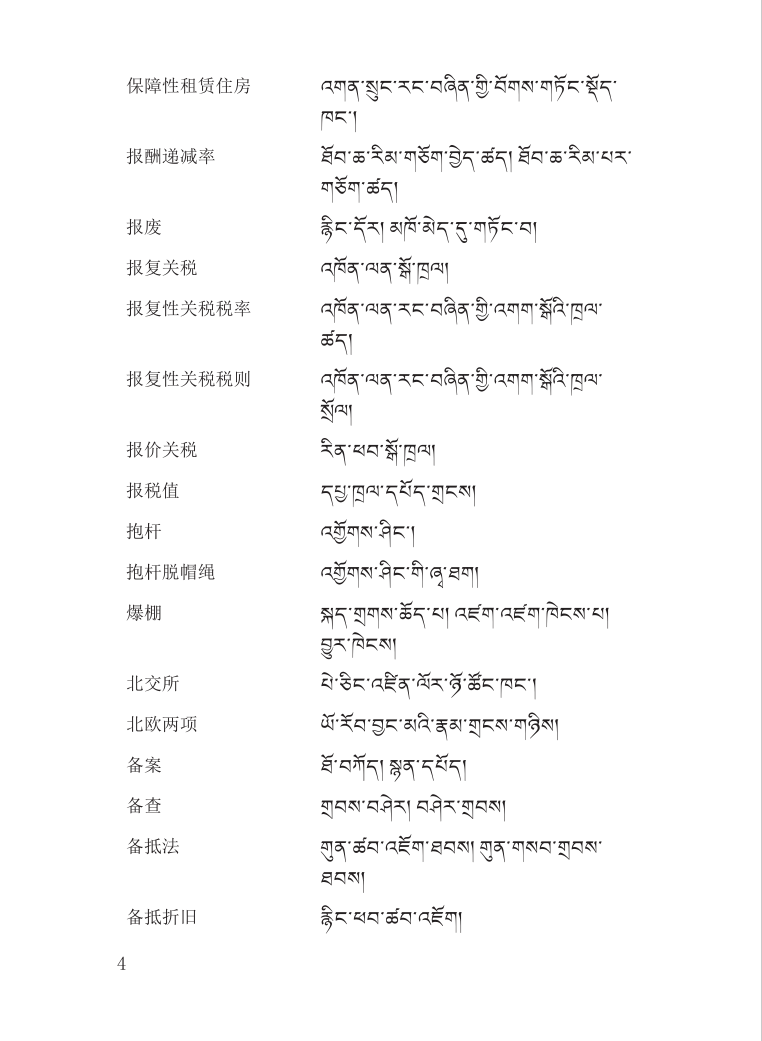 保障性租赁住房 འགན་སྲུང་རང་བཞིན་གྱི་བོགས་གཏོང་སྡོད་
ཁང་།
报酬递减率 ཐོབ་ཆ་རིམ་གཅོག་བྱེད་ཚད། ཐོབ་ཆ་རིམ་པར་
གཅོག་ཚད།
报废 རྙིང་དོར། མཁོ་མེད་དུ་གཏོང་བ།
报复关税 འཁོན་ལན་སྒོ་ཁྲལ།
报复性关税税率 འཁོན་ལན་རང་བཞིན་གྱི་འགག་སྒོའི་ཁྲལ་
ཚད།
报复性关税税则 འཁོན་ལན་རང་བཞིན་གྱི་འགག་སྒོའི་ཁྲལ་
སྲོལ།
报价关税 རིན་ཕབ་སྒོ་ཁྲལ།
报税值 དཔྱ་ཁྲལ་དཔོད་གྲངས།
抱杆 འགྱོགས་ཤིང་།
抱杆脱帽绳 འགྱོགས་ཤིང་གི་ཞྭ་ཐག།
爆棚 སྐད་གྲགས་ཆོད་པ། འཛག་འཛག་ཁེངས་པ།
བྱུར་ཁེངས།
北交所 པེ་ཅིང་འཛིན་ལོར་ཉོ་ཚོང་ཁང་།
北欧两项 ཡོ་རོབ་བྱང་མའི་རྣམ་གྲངས་གཉིས།
备案 ཐོ་བཀོད། སྙན་དཔོད།
备查 གྲབས་བཤེར། བཤེར་གྲབས།
备抵法 གུན་ཚབ་འཇོག་ཐབས། གུན་གསབ་གྲབས་
ཐབས།
备抵折旧 རྙིང་ཕབ་ཚབ་འཇོག།
4